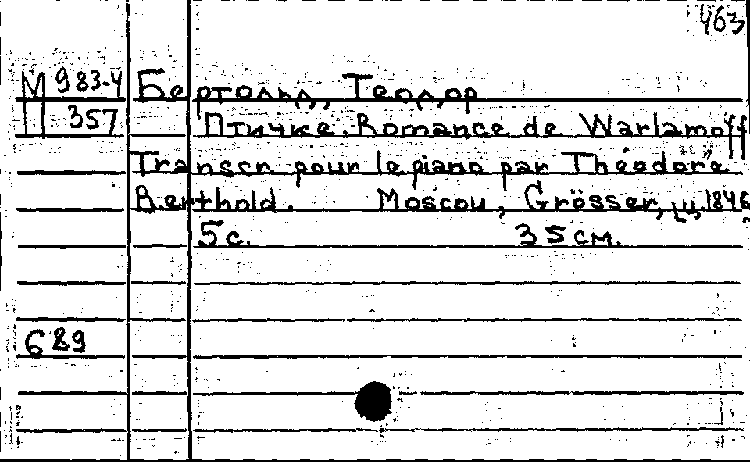 463
М 983-4 Бертольд, Теодор
П 357 Птичке. Romance de Warlamoff
Transcr pour le piano par Théodore
Berthold. Moscou, Grösser, ц, 1846
5 с. 35 см.
689